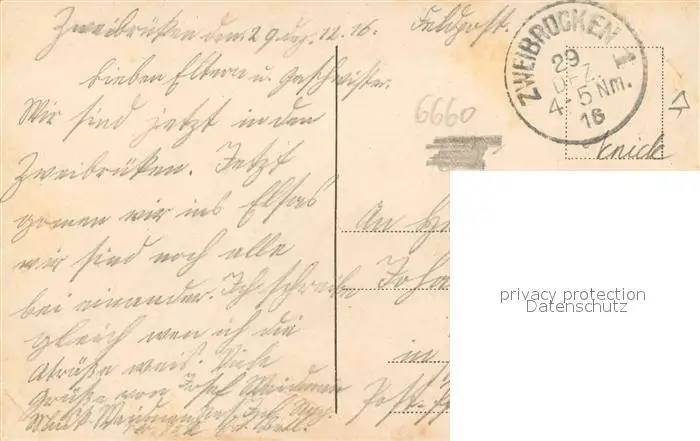 Zweibrüken den 29 Dez. 12. 16. Feldpost.
Lieben Eltern u. Geschwister.
Wir sind jetzt in den
Zweibrüken. Jetzt
gomen wir ins Elsas
wir sind noch alle
bei einander. Ich schreibe
gleich wen ich die
Aträße weis. Viele
Grüße von Josef
ZWEIBRÜCKEN 1
29
DEZ.
4-5 Nm.
16
6660
Knick
An
Joha
in
Post.
privacy protection
Datenschutz